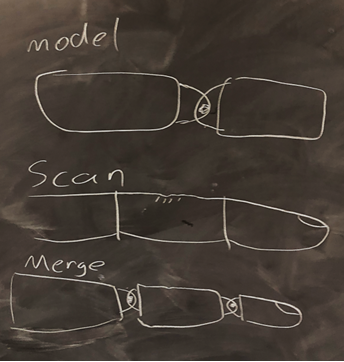 model
Scan
Merge